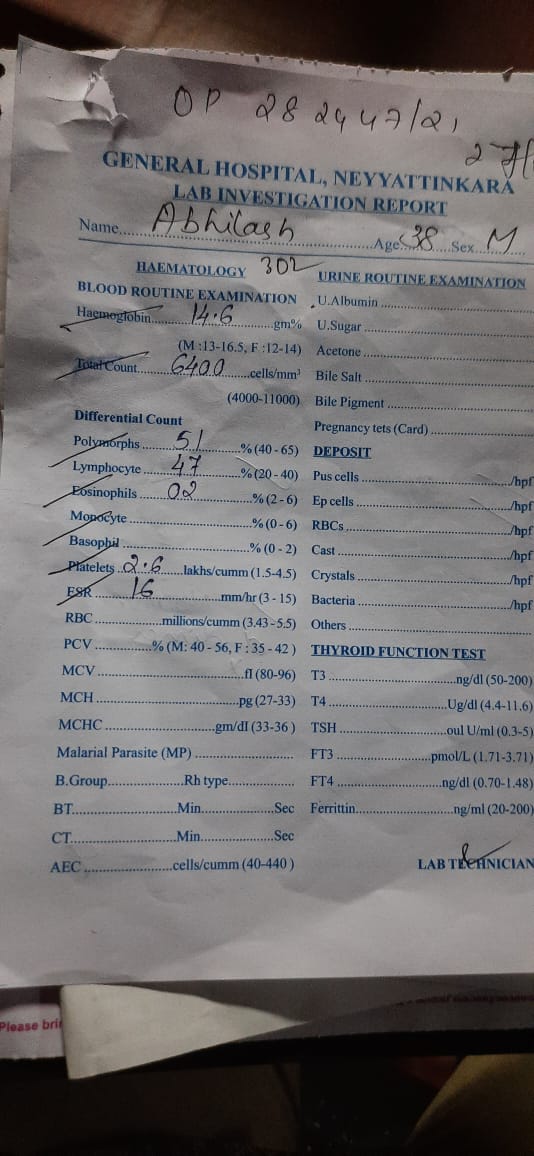 OP 282447/21
GENERAL HOSPITAL, NEYYATTINKARA
LAB INVESTIGATION REPORT
Name Abhilash Age 38 Sex M
302
HAEMATOLOGY
BLOOD ROUTINE EXAMINATION
Haemoglobin 14.6 gm%
(M :13-16.5, F :12-14)
Total Count 6400 cells/mm³
(4000-11000)
Differential Count
Polymorphs 51 % (40 - 65)
Lymphocyte 47 % (20 - 40)
Eosinophils 02 % (2 - 6)
Monocyte % (0 - 6)
Basophil % (0 - 2)
Platelets 2.6 lakhs/cumm (1.5-4.5)
ESR 16 mm/hr (3 - 15)
RBC millions/cumm (3.43 -5.5)
PCV % (M: 40 - 56, F : 35 - 42 )
MCV fl (80-96)
MCH pg (27-33)
MCHC gm/dI (33-36 )
Malarial Parasite (MP)
B.Group Rh type
BT Min Sec
CT Min Sec
AEC cells/cumm (40-440 )
URINE ROUTINE EXAMINATION
U.Albumin
U.Sugar
Acetone
Bile Salt
Bile Pigment
Pregnancy tets (Card)
DEPOSIT
Pus cells /hpf
Ep cells /hpf
RBCs /hpf
Cast /hpf
Crystals /hpf
Bacteria /hpf
Others
THYROID FUNCTION TEST
T3 ng/dl (50-200)
T4 Ug/dl (4.4-11.6)
TSH oul U/ml (0.3-5)
FT3 pmol/L (1.71-3.71)
FT4 ng/dl (0.70-1.48)
Ferrittin ng/ml (20-200)
LAB TECHNICIAN
Please bri